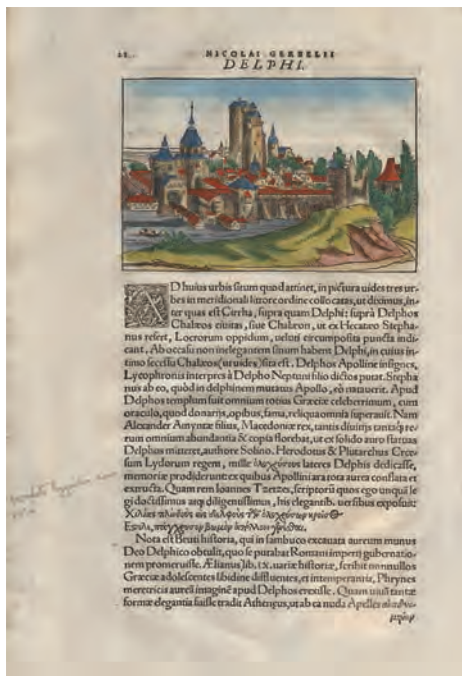 NICOLAI GERBELII
DELPHI.
AD huius urbis situm quod attinet, in pictura uides tres ur-
bes in meridionali littore ordine collocatas, ut diximus, in-
ter quas est Cirrha, supra quam Delphi: suprà Delphos
Chalæos ciuitas, siue Chalæon, ut ex Hecatæo Stepha-
nus refert, Locrorum oppidum, ueluti circumposita puncta indi-
cant. Ab occasu non inelegantem sinum habent Delphi, in cuius in-
timo secessu Chalæos (ut uides) sita est. Delphos Apolline insignes,
Lycophronis interpres à Delpho Neptuni filio dictos putat. Stepha
nus ab eo, quòd in delphinem mutatus Apollo, eò nauerit. Apud
Delphos templum fuit omnium totius Græciæ celeberrimum, cum
oraculo, quod donarijs, opibus, fama, reliqua omnia superauit. Nam
Alexander Amyntæ filius, Macedoniæ rex, tantis diuitijs tantaq; re-
rum omnium abundantia & copia florebat, ut ex solido auro statuas
Delphos mitteret, authore Solino. Herodotus & Plutarchus Crœ-
sum Lydorum regem, mille lateres Delphis dedicasse,
memoriæ prodiderunt: ex quibus Apollini ara tota aurea conflata et
extructa. Quam rem Ioannes Tzetzes, scriptorũ quos ego unquã le
gi doctissimus atq; diligentissimus, his elegantib. uersibus exposuit:
Nota est Bruti historia, qui in sambuco excauata aureum munus
Deo Delphico obtulit, quo se putabat Romani imperij gubernatio-
nem promeruisse. Ælianus lib. ix. uariæ historiæ, scribit nonnullos
Græciæ adolescentes libidine diffluentes, et intemperantia, Phrynes
meretricis aureã imaginẽ apud Delphos erexisse. Quam unũ tantæ
formæ elegantia fuisse tradit Athenæus, ut ab ea nuda Apelles